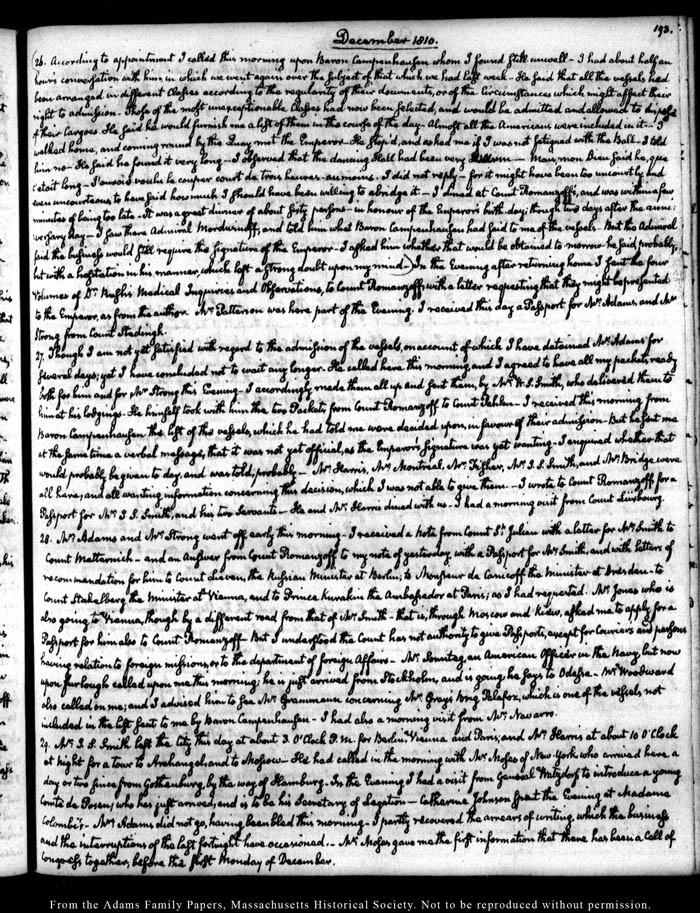 193.
December 1810.
26. According to appointment I called this morning upon Baron Campenhausen whom I found still unwell - I had about half an
hour's conversation with him, in which we went again over the subject of that which we had last week - He said that all the vessels had
been arranged in different Classes according to the regularity of their documents, or of the Circumstances which might affect their
right to admission. Those of the most unexceptionable Classes had now been selected, and would be admitted and allowed to dispose
of their Cargoes. He said he would furnish me a list of them in the course of the day. Almost all the Americans were included in it - I
walked home, and coming round by the Quay met the Emperor - He stop'd, and asked me if I was not fatigued with the Ball - I told
him no - He said he found it very long - I observed that the dancing Hall had been very - Mais, mon Dieu said he, que
c'etoit long - J'aurois voulu le couper court de trois heures - au moins. I did not reply - for it might have been too uncourtly and
even uncourteous to have said how much I should have been willing to abridge it - I dined at Count Romanzoff's, and was within a few
minutes of being too late - It was a great dinner of about forty persons - in honour of the Emperor's birth day; though two days after the anni:
versary day - I saw there Admiral Mordwinoff, and told him what Baron Campenhausen had said to me of the vessels - But the Admiral
said the business would still require the Signature of the Emperor - I asked him whether that would be obtained to morrow - he said, probably,
but with a hesitation in his manner, which left a strong doubt upon my mind - In the Evening after returning home I sent the four
Volumes of Dr. Rush's Medical Inquiries and Observations, to Count Romanzoff, with a letter requesting that they might be presented
to the Emperor, as from the author. Mr. Patterson was here part of the Evening. I received this day a Passport for Mr. Adams, and Mr.
Strong from Count Stedingk.
27. Though I am not yet satisfied with regard to the admission of the vessels, on account of which I have detained Mr. Adams for
several days; yet I have concluded not to wait any longer. He called here this morning, and I agreed to have all my packets ready
both for him and for Mr. Strong this Evening - I accordingly made them all up and sent them, by Mr. W. S. Smith, who delivered them to
him at his lodgings. He himself took with him the two Packets from Count Romanzoff to Count Pahlen - I received this morning from
Baron Campenhausen the list of the vessels, which he had told me were decided upon, in favour of their admission - But he sent me
at the same time a verbal message, that it was not yet official, as the Emperor's signature was yet wanting - I enquired whether that
would probably be given to day, and was told, probably - Mr. Harris, Mr. Montreal, Mr. Fisher, Mr. J. S. Smith, and Mr. Bridge were
all here, and all wanting information concerning this decision, which I was not able to give them - I wrote to Count Romanzoff for a
Passport for Mr. J. S. Smith, and his two Servants - He and Mr. Harris dined with us - I had a morning visit from Count Luxbourg.
28. Mr. Adams and Mr. Strong went off, early this morning - I received a Note from Count St. Julien with a letter for Mr. Smith to
Count Metternich - and an Answer from Count Romanzoff to my note of yesterday, with a Passport for Mr. Smith, and with letters of
recommendation for him to Count Lieven, the Russian Minister at Berlin; to Monsieur de Canicoff the Minister at Dresden - to
Count Stakelberg, the Minister at Vienna, and to Prince Kurakin the Ambassador at Paris; as I had requested. Mr. Jones who is
also going to Vienna, though by a different road from that of Mr. Smith - that is, through Moscow and Kiew, asked me to apply for a
Passport for him also to Count Romanzoff - But I understood the Count has not authority to give Passports, except for Couriers and persons
having relation to foreign missions, or to the department of foreign Affairs - Mr. Sonntag, an American Officer in the Navy, but now
upon furlough called upon me this morning; he is just arrived from Stockholm, and is going he says to Odessa - Mr. Woodward
also called on me; and I advised him to see Mr. Grammann concerning Mr. Gray's brig Palafox, which is one of the vessels not
included in the list sent to me by Baron Campenhausen - I had also a morning visit from Mr. Navarro.
29. Mr. J. S. Smith left the City this day at about 3. O'Clock P. M. for Berlin, Vienna and Paris; and Mr. Harris at about 10 O'Clock
at Night for a tour to Archangel, and to Moscow - He had called in the morning with Mr. Moses of New York, who arrived here a
day or two since from Gothenburg, by the way of Hamburg. In the Evening I had a visit from General Watzdorf to introduce a young
Comte de Posen, who has just arrived, and is to be his Secretary of Legation - Catherine Johnson spent the Evening at Madame
Colombi's - Mrs. Adams did not go, having been bled this morning - I partly recovered the arrears of writing, which the business
and the interruptions of the last fortnight have occasioned. - Mr. Moses gave me the first information that there has been a Call of
Congress together, before the first Monday of December.
From the Adams Family Papers, Massachusetts Historical Society. Not to be reproduced without permission.